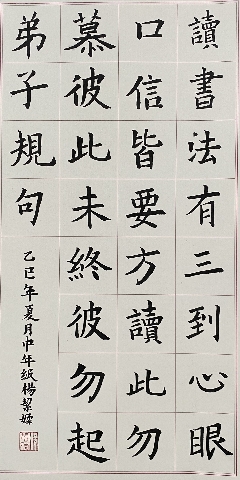 讀書法有三到心眼
口信皆要方讀此勿
慕彼此未終彼勿起
弟子規句
乙巳年夏月中年級楊